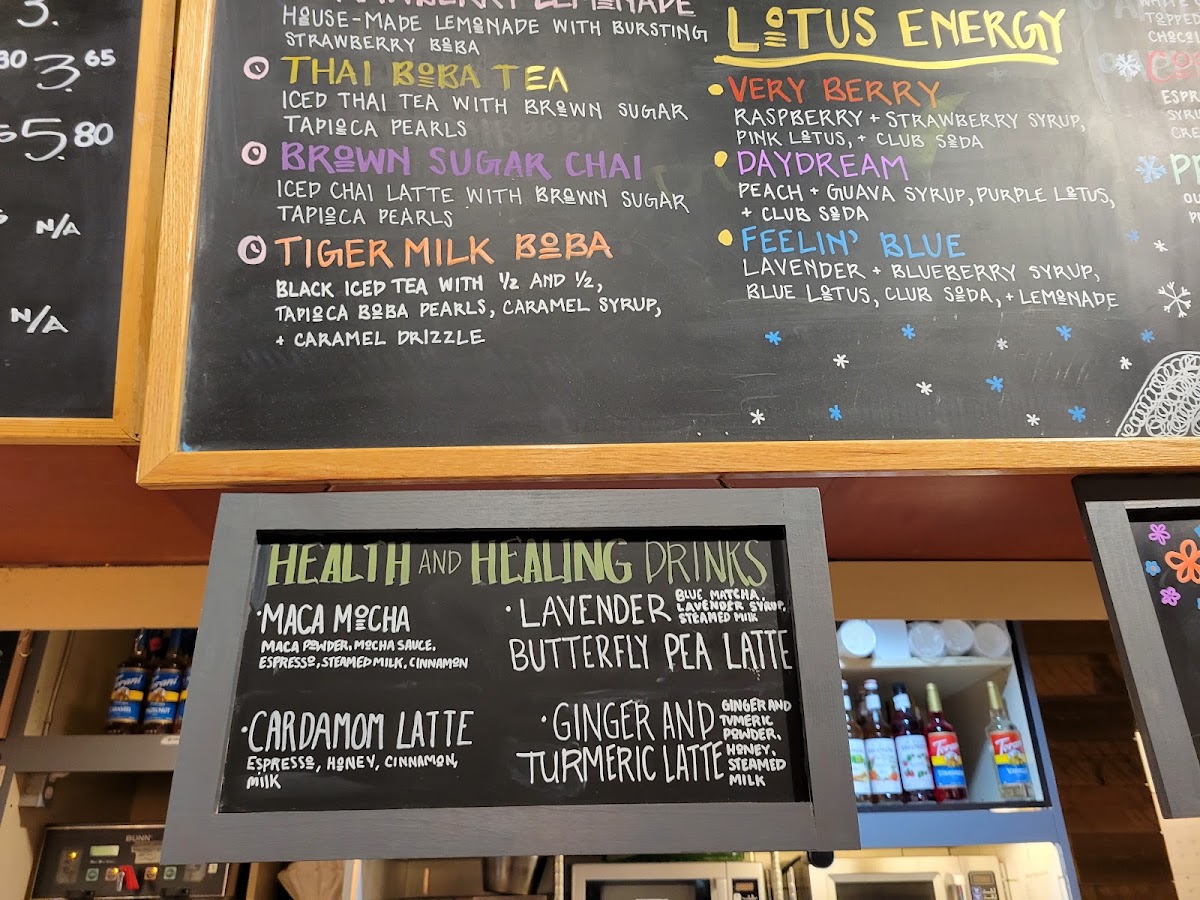 3.
30 3.65
5.80
N/A
N/A
LEMONADE
HOUSE-MADE LEMONADE WITH BURSTING
STRAWBERRY BOBA
THAI BOBA TEA
ICED THAI TEA WITH BROWN SUGAR
TAPIOCA PEARLS
BROWN SUGAR CHAI
ICED CHAI LATTE WITH BROWN SUGAR
TAPIOCA PEARLS
TIGER MILK BOBA
BLACK ICED TEA WITH ½ AND ½,
TAPIOCA BOBA PEARLS, CARAMEL SYRUP,
+ CARAMEL DRIZZLE
LOTUS ENERGY
VERY BERRY
RASPBERRY + STRAWBERRY SYRUP,
PINK LOTUS, + CLUB SODA
DAYDREAM
PEACH + GUAVA SYRUP, PURPLE LOTUS,
+ CLUB SODA
FEELIN' BLUE
LAVENDER + BLUEBERRY SYRUP,
BLUE LOTUS, CLUB SODA, + LEMONADE
HEALTH AND HEALING DRINKS
·MACA MOCHA
MACA POWDER, MOCHA SAUCE,
ESPRESSO, STEAMED MILK, CINNAMON
·CARDAMOM LATTE
ESPRESSO, HONEY, CINNAMON,
MILK
·LAVENDER
BUTTERFLY PEA LATTE
BLUE MATCHA,
LAVENDER SYRUP,
STEAMED MILK
·GINGER AND
TURMERIC LATTE
GINGER AND
TVMERIC
POWDER,
HONEY,
STEAMED
MILK
Torani
Torani
Torani
Torani
BUNN